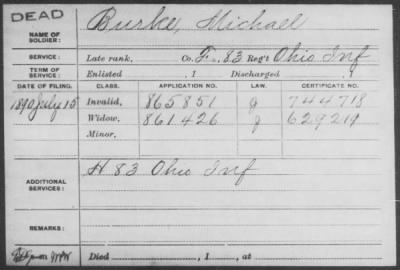 DEAD
NAME OF SOLDIER: Burke, Michael
SERVICE: Late rank, Co. F, 83 Reg't Ohio Inf
TERM OF SERVICE: Enlisted , 1 Discharged , 1
DATE OF FILING. CLASS. APPLICATION NO. LAW. CERTIFICATE NO.
1890 July 15 Invalid, 865851 J 744718
Widow, 861426 J 629219
Minor,
ADDITIONAL SERVICES: H 83 Ohio Inf
REMARKS:
Died , 1 , at